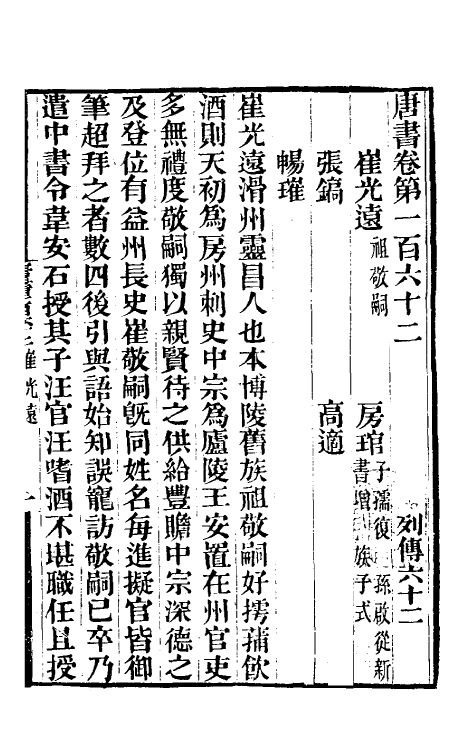 唐書卷第一百六十二　列傳六十二
崔光遠祖敬嗣　房琯子孺復　孫啟從新書增　族子式
張鎬　高適
暢璀
崔光遠滑州靈昌人也本博陵舊族祖敬嗣好摴蒱飲
酒則天初爲房州刺史中宗爲廬陵王安置在州官吏
多無禮度敬嗣獨以親賢待之供給豐贍中宗深德之
及登位有益州長史崔敬嗣旣同姓名每進擬官皆御
筆超拜之者數四後引與語始知誤寵訪敬嗣已卒乃
遣中書令韋安石授其子汪官汪嗜酒不堪職任且授
崔光遠　一